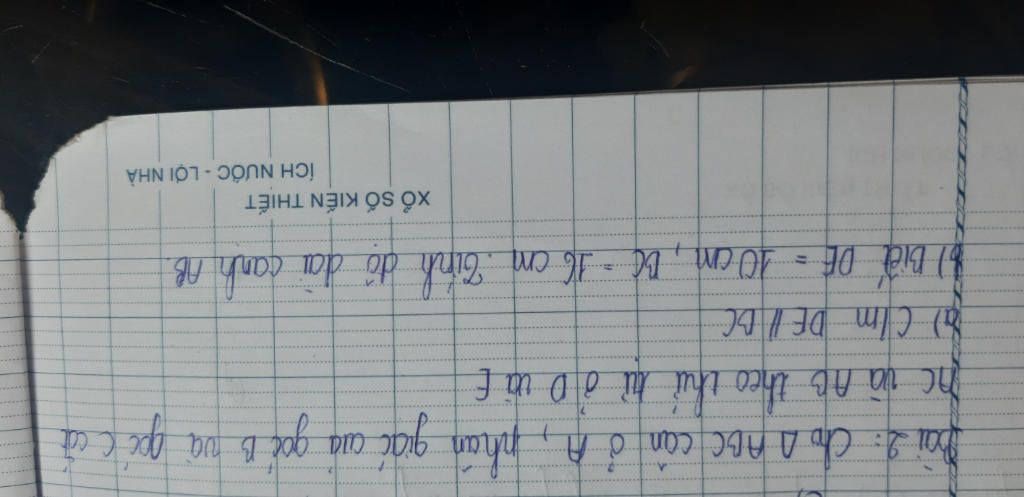 Bài 2: Cho Δ ABC cân ở A, phân giác của góc B và góc C cắt
AC và AB theo thứ tự ở D và E
a) C/m DE // BC
b) Biết DE = 10cm, BC = 16 cm. Tính độ dài cạnh AB.
XỔ SỐ KIẾN THIẾT
ÍCH NƯỚC - LỢI NHÀ